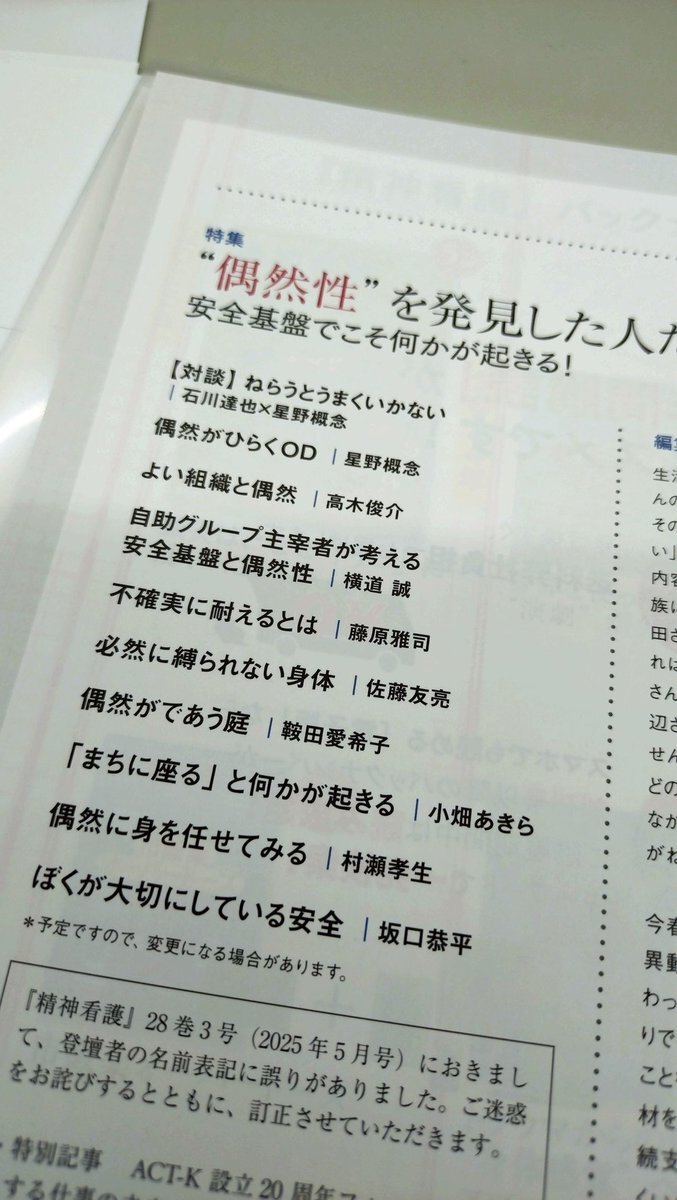 特集
“偶然性”を発見した人た
安全基盤でこそ何かが起きる!
【対談】ねらうとうまくいかない
|石川達也×星野概念
偶然がひらくOD |星野概念
よい組織と偶然 |高木俊介
自助グループ主宰者が考える
安全基盤と偶然性 |横道 誠
不確実に耐えるとは |藤原雅司
必然に縛られない身体 |佐藤友亮
偶然がであう庭 |鞍田愛希子
「まちに座る」と何かが起きる |小畑あきら
偶然に身を任せてみる |村瀬孝生
ぼくが大切にしている安全 |坂口恭平
*予定ですので、変更になる場合があります。
『精神看護』28巻3号(2025年5月号)におきまし
て、登壇者の名前表記に誤りがありました。ご迷惑
をお詫びするとともに、訂正させていただきます。
・特別記事 ACT-K設立20周年
編集
生活
んの
その
い」
内容
族に
田さ
れは
さん
辺さ
せん
どの
なか
がね
今春
異動
わっ
りで
こと
材を
続支